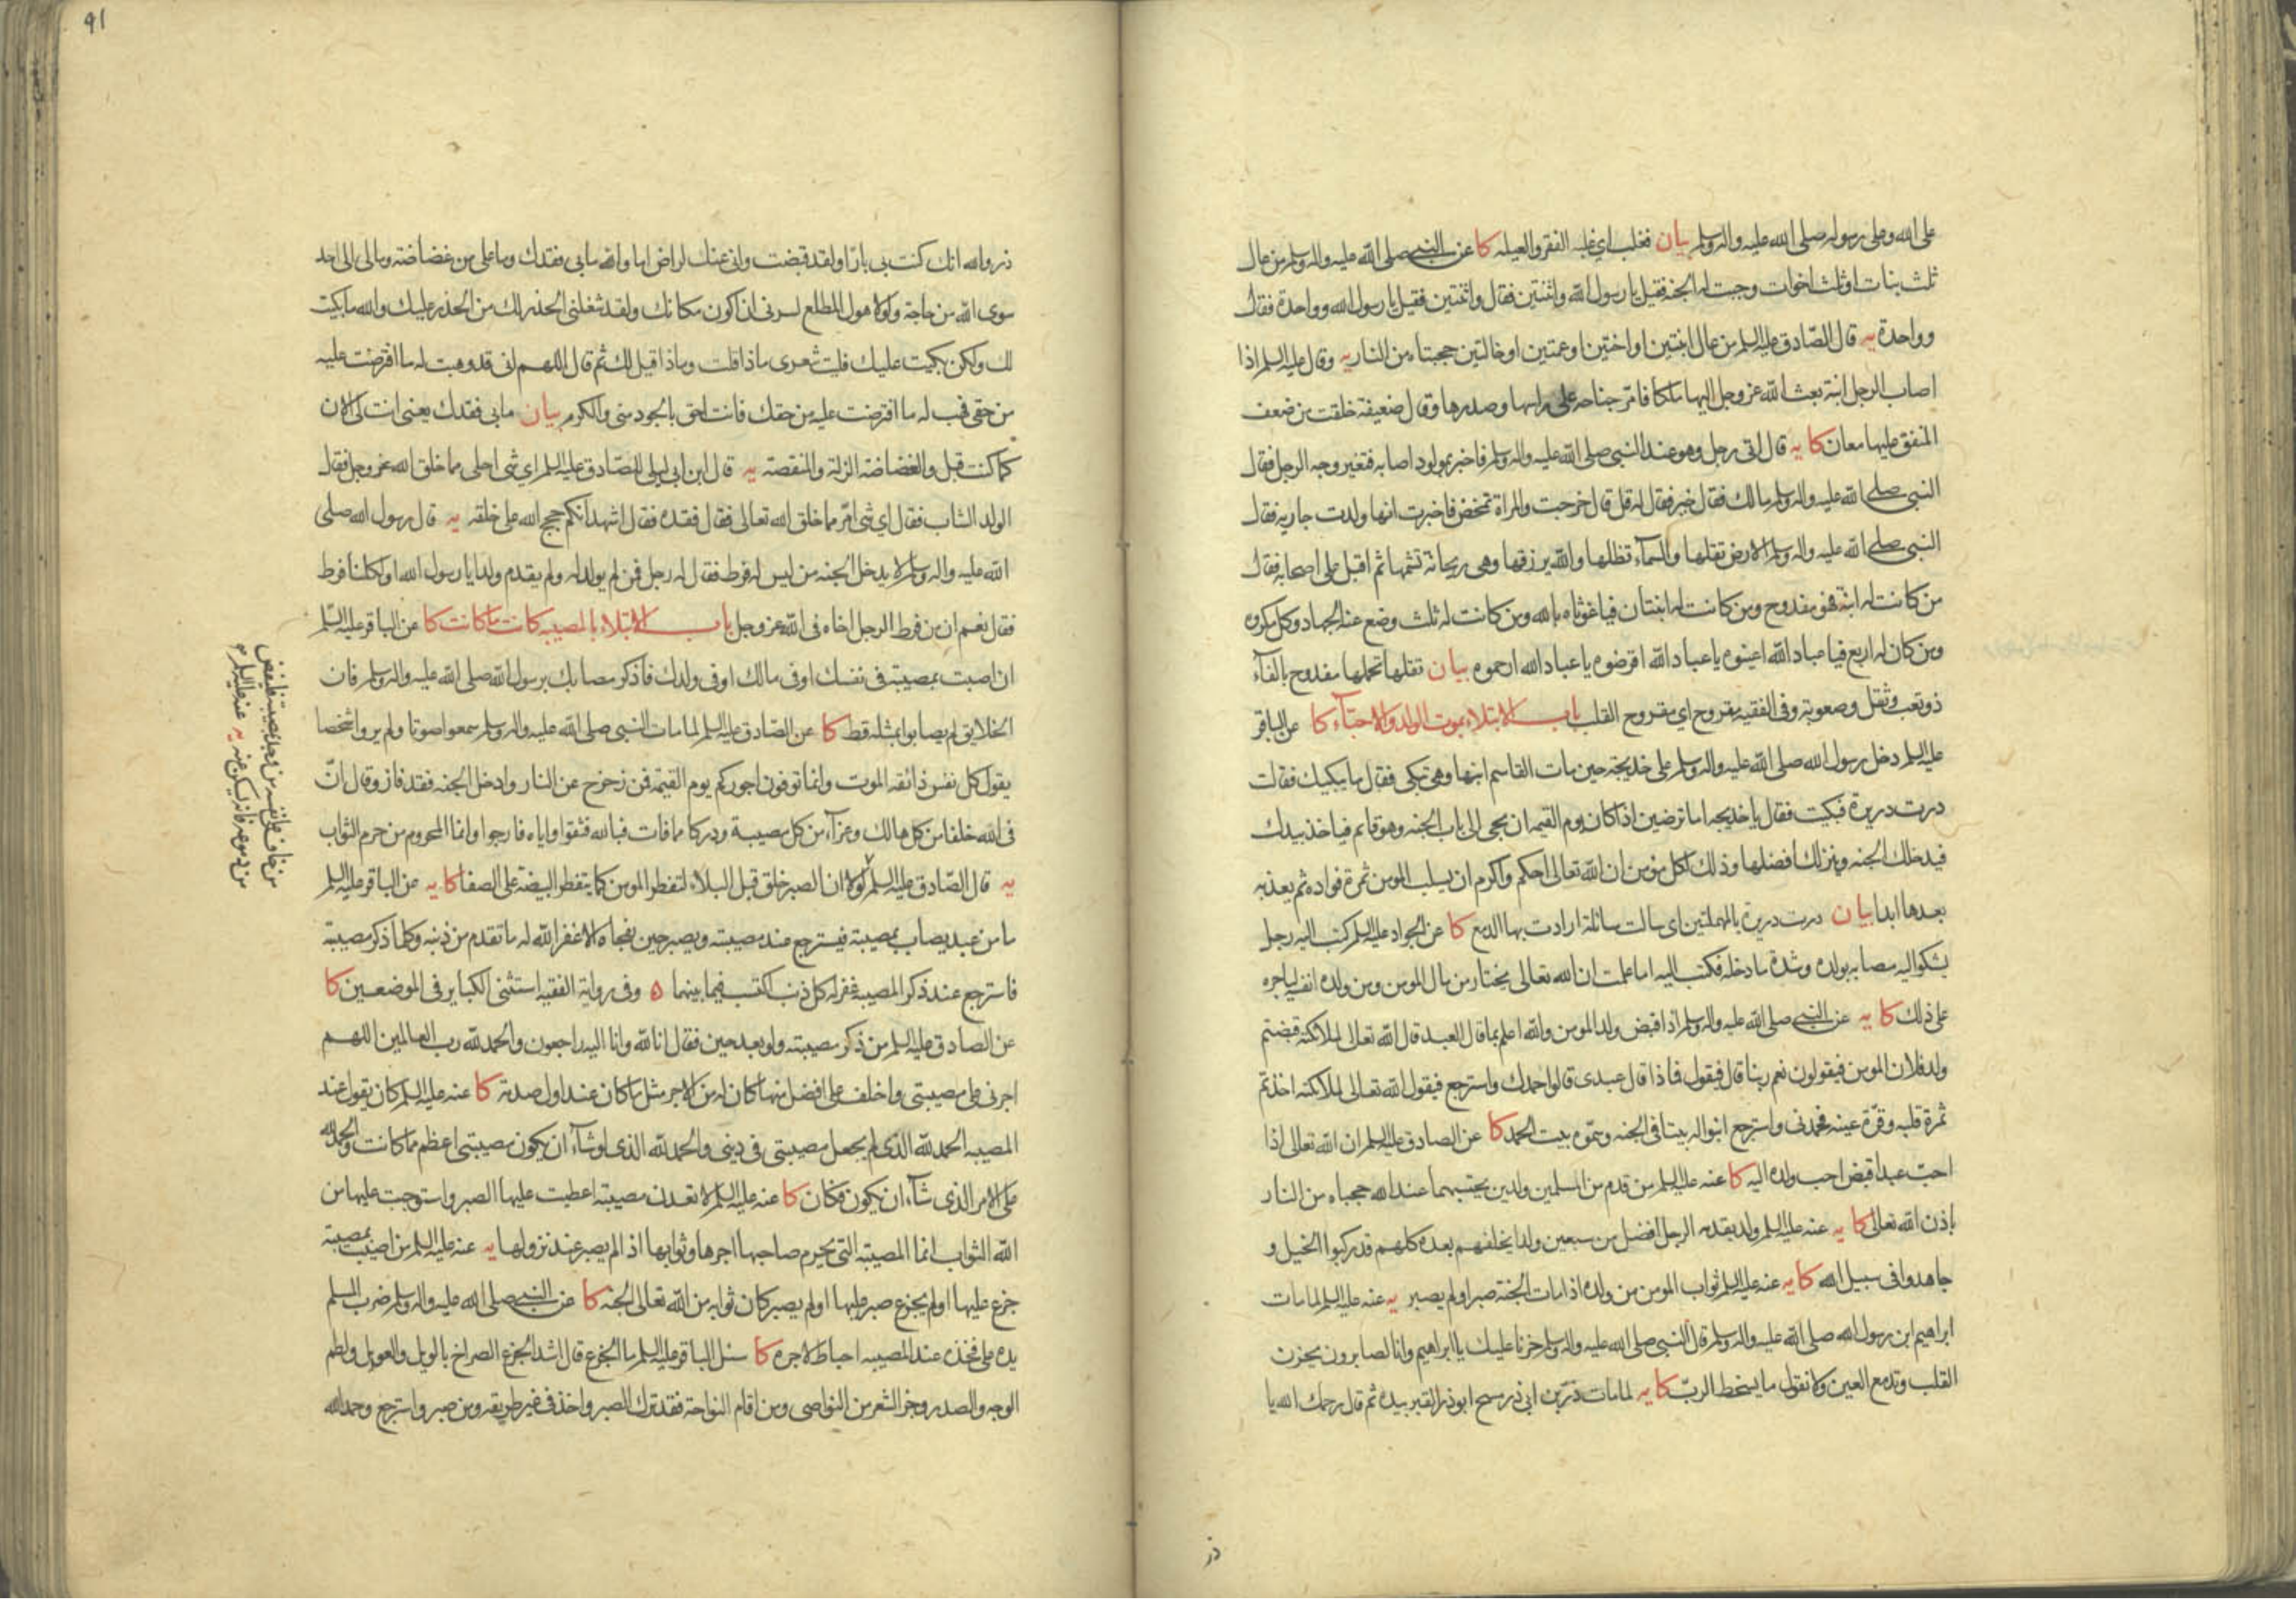 على الله وعلى رسوله صلى الله عليه واله وسلم بيان فغلب اي غلبه الفقر والعيله كا عن النبي صلى الله عليه واله وسلم من عال
ثلث بنات او ثلث اخوات وجبت له الجنه فقيل يا رسول الله واثنتين فقال واثنتين فقيل يا رسول الله وواحدة فقال
وواحدة يه قال الصّادق عليه السلم من عال ابنتين او اختين او عمتين او خالتين حجبتاه من النار يه وقال عليه السلم اذا
اصاب الرجل ابنة بعث الله عز وجل اليها ملكا فامرّ جناحه على راسها وصدرها وقال ضعيفة خلقت من ضعف
المنفق عليها معان كا يه قال اتى رجل وهو عند النبي صلى الله عليه واله وسلم فاخبر بمولود اصابه فتغير وجه الرجل فقال
النبي صلى الله عليه واله وسلم ما لك فقال خير فقال له قل قال خرجت والمراة تمخض فاخبرت انها ولدت جاريه فقال
النبي صلى الله عليه واله وسلم الارض تقلها والسمآء تظلها والله يرزقها وهى ريحانة تشمها ثم اقبل على اصحابه فقال
من كانت له ابنة فهو مفدوح ومن كانت له ابنتان فيا غوثاه بالله ومن كانت له ثلث وضع عنه الجهاد وكل مكروه
ومن كان له اربع فيا عباد الله اعينوه يا عباد الله اقرضوه يا عباد الله ارحموه بيان تقلها تحملها مفدوح بالفآء
ذو تعب وثقل وصعوبة وفى الفقيه مقروح اي مقروح القلب باب الابتلاء بموت الولد والاحبّاء كا عن الباقر
عليه السلم دخل رسول الله صلى الله عليه واله وسلم على خديجه حين مات القاسم ابنها وهى تبكى فقال ما يبكيك فقالت
درت دريرة فبكيت فقال يا خديجه اما ترضين اذا كان يوم القيمه ان يجى الى باب الجنه وهو قائم فياخذ بيدك
فيدخلك الجنه وينزلك افضلها وذلك لكل مؤمن ان الله تعالى احكم واكرم ان يسلب المومن ثمرة فواده ثم يعذبه
بعدها ابدا بيان درت دريرة بالمهملتين اى سالت سائلة ارادت بها الدمع كا عن الجواد عليه السلم كتب اليه رجل
يشكو اليه مصابه بولده وشدة ما دخله فكتب اليه اما علمت ان الله تعالى يختار من مال المومن ومن ولده انفسه لياجره
على ذلك كا يه عن النبي صلى الله عليه واله وسلم اذا قبض ولد المومن والله اعلم بما قال العبد قال الله تعالى لملائكته قبضتم
ولد فلان المومن فيقولون نعم ربنا قال فيقول فماذا قال عبدى قالوا حمدك واسترجع فيقول الله تعالى لملائكته اخذتم
ثمرة قلبه وقرّة عينه فحمدنى واسترجع ابنوا له بيتا فى الجنه وسمّوه بيت الحمد كا عن الصادق عليه السلم ان الله تعالى اذا
احبّ عبدا قبض احب ولده اليه كا عنه عليه السلم من قدم من المسلمين ولدين يحتسبهما عند الله حجباه من النار
باذن الله تعالى كا يه عنه عليه السلم ولد يقدمه الرجل افضل من سبعين ولدا يخلفهم بعده كلهم قد ركبوا الخيل و
جاهدوا فى سبيل الله كا يه عنه عليه السلم ثواب المومن من ولده اذا مات الجنة صبر او لم يصبر يه عنه عليه السلم لما مات
ابراهيم ابن رسول الله صلى الله عليه واله وسلم قال النبي صلى الله عليه واله وسلم حزنا عليك يا ابراهيم وانا لصابرون يحزن
القلب وتدمع العين ولا نقول ما يسخط الربّ كا يه لما مات ذرّ بن ابى ذر مسح ابو ذر القبر بيده ثم قال رحمك الله يا
ذر
91
ذر والله انك كنت بى بارّا ولقد قبضت وانى عنك لراض اما والله ما بى فقدك وما على من غضاضة وما لى الى احد
سوى الله من حاجة ولولا هول المطلع لسرنى ان اكون مكانك ولقد شغلنى الحذر لك من الحذر عليك والله ما بكيت
لك ولكن بكيت عليك فليت شعرى ماذا قلت وماذا قيل لك ثم قال اللهم انى قد وهبت له ما افترضت عليه
من حقى فهب له ما افترضت عليه من حقك فانت احق بالجود منى والكرم بيان ما بى فقدك يعنى انت لى الان
كما كنت قبل والغضاضة الزلة والمنقصة يه قال ابن ابى ليلى للصّادق عليه السلم اي شى احلى مما خلق الله عز وجل فقال
الولد الشاب فقال اي شى امر مما خلق الله تعالى فقال فقده فقال اشهد انكم حجج الله على خلقه يه قال رسول الله صلى
الله عليه واله وسلم لا يدخل الجنه من ليس له فرط فقال له رجل فمن لم يولد له ولم يقدم ولدا يا رسول الله او لكلنا فرط
فقال نعم ان من فرط الرجل اخاه فى الله عز وجل باب الابتلاء بالمصيبه كانت ما كانت كا عن الباقر عليه السلم
ان اصبت بمصيبة فى نفسك او فى مالك او فى ولدك فاذكر مصابك برسول الله صلى الله عليه واله وسلم فان
الخلايق لم يصابوا بمثله قط كا عن الصّادق عليه السلم لما مات النبي صلى الله عليه واله وسلم سمعوا صوتا ولم يروا شخصا
يقول كل نفس ذائقه الموت وانما توفون اجوركم يوم القيمة فمن زحزح عن النار وادخل الجنه فقد فاز وقال انّ
فى الله خلفا من كل هالك وعزآء من كل مصيبة ودركا ما فات فبالله فثقوا واياه فارجوا وانما المحروم من حرم الثواب
يه قال الصّادق عليه السلم لولا ان الصبر خلق قبل البلاء لتفطر المومن كما يتفطر البيضة على الصفا كا يه عن الباقر عليه السلم
ما من عبد يصاب بمصيبة فيسترجع عند مصيبته ويصبر حين تفجاه الا غفر الله له ما تقدم من ذنبه وكلما ذكر مصيبة
فاسترجع عند ذكر المصيبة غفر له كل ذنب اكتسب فيما بينهما ه وفى رواية الفقيه استثنى الكباير فى الموضعين كا
عن الصادق عليه السلم من ذكر مصيبته ولو بعد حين فقال انا لله وانا اليه راجعون والحمد لله رب العالمين اللهم
اجرنى على مصيبتى واخلف على افضل منها كان له من الاجر مثل ما كان عند اول صدمة كا عنه عليه السلم كان يقول عند
المصيبه الحمد لله الذى لم يجعل مصيبتى فى دينى والحمد لله الذى لو شآء ان يكون مصيبتى اعظم مما كانت والحمد لله
على الامر الذى شآء ان يكون فكان كا عنه عليه السلم لا تعدن مصيبة اعطيت عليها الصبر واستوجبت عليها من
الله الثواب انما المصيبة التى يحرم صاحبها اجرها وثوابها اذا لم يصبر عند نزولها يه عنه عليه السلم من اصيب بمصيبة
جزع عليها او لم يجزع صبر عليها او لم يصبر كان ثوابه من الله تعالى الجنه كا عن النبي صلى الله عليه واله وسلم ضرب المسلم
يده على فخذه عند المصيبه احباط لاجره كا سئل الباقر عليه السلم ما الجزع قال اشد الجزع الصراخ بالويل والعويل ولطم
الوجه والصدر وجز الشعر من النواصى ومن اقام النواحة فقد ترك الصبر واخذ فى غير طريقه ومن صبر واسترجع وحمد الله
من خاف على نفسه من وجد بمصيبة فليفض
من دموعه فانه يسكن عنه يه عنه عليه السلم